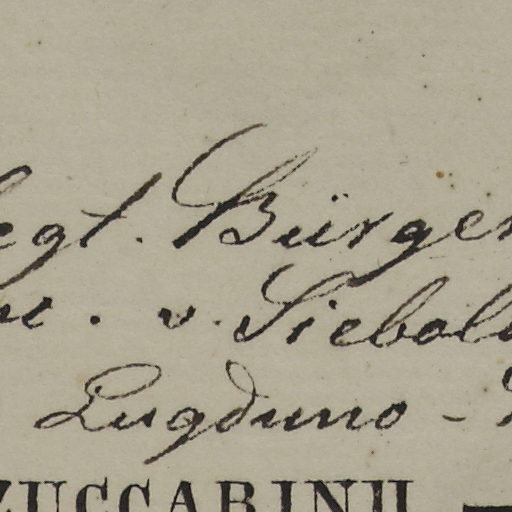 legt. Bürger
v. Siebold
Lugduno -
ZUCCARINII